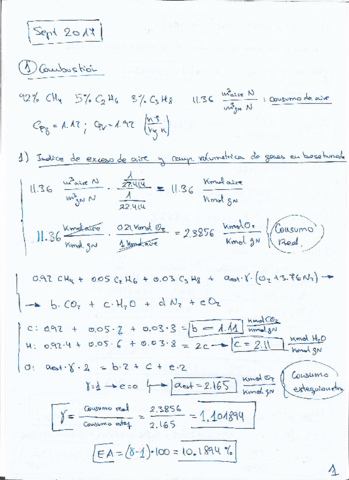 Sept 2017
① Combustión
92% CH4 5% C2H6 3% C3H8 11.36 m³aire N / m³g N : consumo de aire
Cpg = 1.12 ; Cpv = 1.92
1) Indice de exceso de aire y comp. volumetrica de gases en base húmeda
11.36 m³aire N / m³g N · (1/22.414) / (1/22.414) = 11.36 Kmol aire / Kmol g N
11.36 Kmol aire / Kmol g N · 0.21 Kmol O2 / 1 Kmol aire = 2.3856 Kmol O2 / Kmol g N Consumo Real.
0.92 CH4 + 0.05 C2H6 + 0.03 C3H8 + aest·γ·(O2 + 3.76 N2) →
→ b·CO2 + c·H2O + d N2 + e O2
C: 0.92 + 0.05·2 + 0.03·3 = b → 1.11 Kmol CO2 / Kmol g N
H: 0.92·4 + 0.05·6 + 0.03·8 = 2c → c = 2.11 Kmol H2O / Kmol g N
O: aest·γ·2 = b·2 + c + e·2
γ=1 → e=0 aest = 2.165 Kmol O2 / Kmol g N Consumo estequiometr
γ = consumo real / consumo esteq = 2.3856 / 2.165 = 1.101894
EA = (γ-1)·100 = 10.1894 %
1